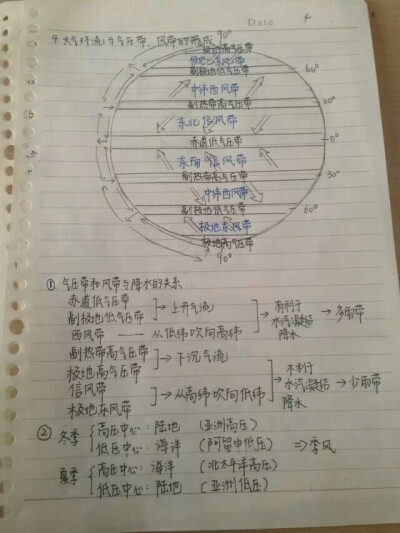 Date
4.大气环流与气压带、风带的形成
90°
极地高气压带
极地东风带
副极地低气压带
60°
中纬西风带
副热带高气压带
30°
东北信风带
赤道低气压带
0°
东南信风带
副热带高气压带
30°
中纬西风带
副极地低气压带
60°
极地东风带
极地高气压带
90°
① 气压带和风带与降水的关系
赤道低气压带
副极地低气压带
→上升气流
西风带 —— 从低纬吹向高纬
→有利于水汽凝结降水→多雨带
副热带高气压带
极地高气压带
→下沉气流
信风带
极地东风带
→从高纬吹向低纬
→不利于水汽凝结降水→少雨带
② 冬季 高压中心：陆地（亚洲高压）
低压中心：海洋（阿留申低压）
⇒季风
夏季 高压中心：海洋（北太平洋高压）
低压中心：陆地（亚洲低压）